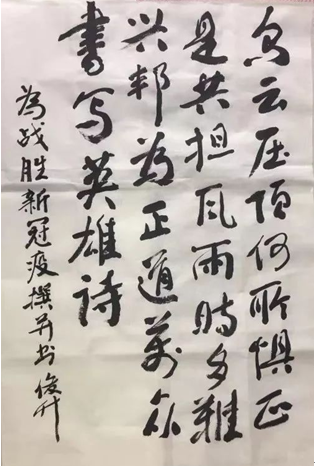 乌云压顶何所惧正
是共担风雨时多难
兴邦为正道万众
書写英雄诗
為战胜新冠疫撰并书 俊升